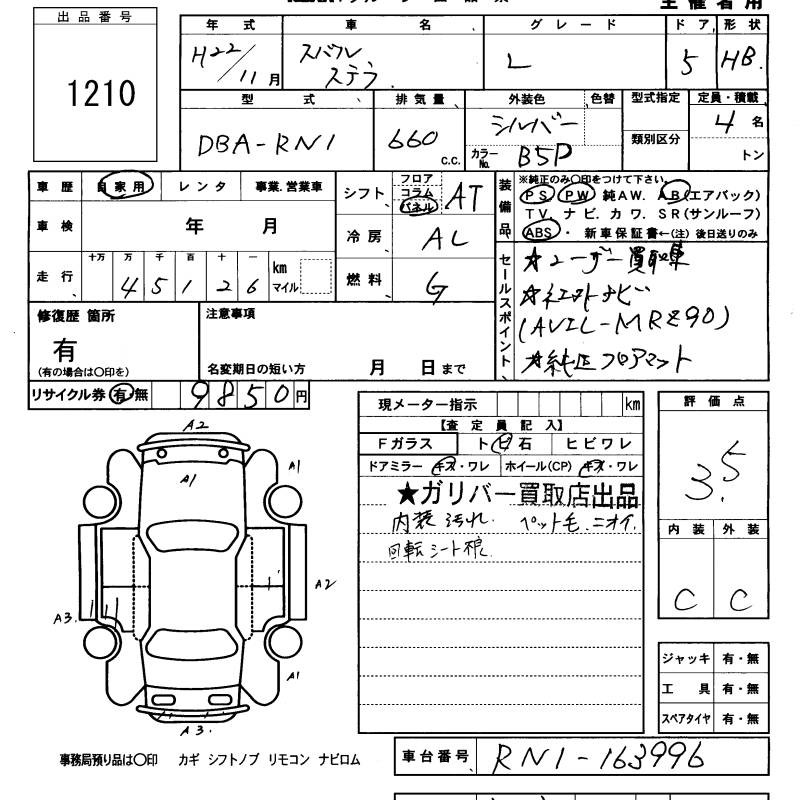 出品番号
1210
年式 車名 グレード ドア 形状
H22/11月 スバル ステラ L 5 HB.
型式 排気量 外装色 色替 型式指定 定員・積載
DBA-RN1 660 C.C. シルバー カラーNo. B5P 類別区分 4名 トン
車歴 自家用 レンタ 事業.営業車
車検 年 月
走行 十万 万 千 百 十 一
4 5 1 2 6 km マイル
シフト フロア コラム パネル AT
冷房 AL
燃料 G
装備品
※純正のみ〇印をつけて下さい。
PS PW 純AW. AB(エアバック)
TV. ナビ. カワ. SR(サンルーフ)
ABS ・ 新車保証書←(注)後日送りのみ
セールスポイント
★ユーザー買取車
★社外ナビ
(AVIC-MRZ90)
★純正フロアマット
修復歴 箇所
有
(有の場合は〇印を)
注意事項
名変期日の短い方 月 日まで
リサイクル券 有・無 9850円
現メーター指示 km
【査定員記入】
Fガラス トビ石 ヒビワレ
ドアミラー キズ・ワレ ホイール(CP) キズ・ワレ
★ガリバー買取店出品
内装 汚れ. ペット毛. ニオイ.
回転シート根.
評価点
3.5
内装 外装
C C
A2
A1
A1
A2
A3.
A1
A3.
ジャッキ 有・無
工具 有・無
スペアタイヤ 有・無
事務局預り品は〇印 カギ シフトノブ リモコン ナビロム
車台番号 RN1-163996